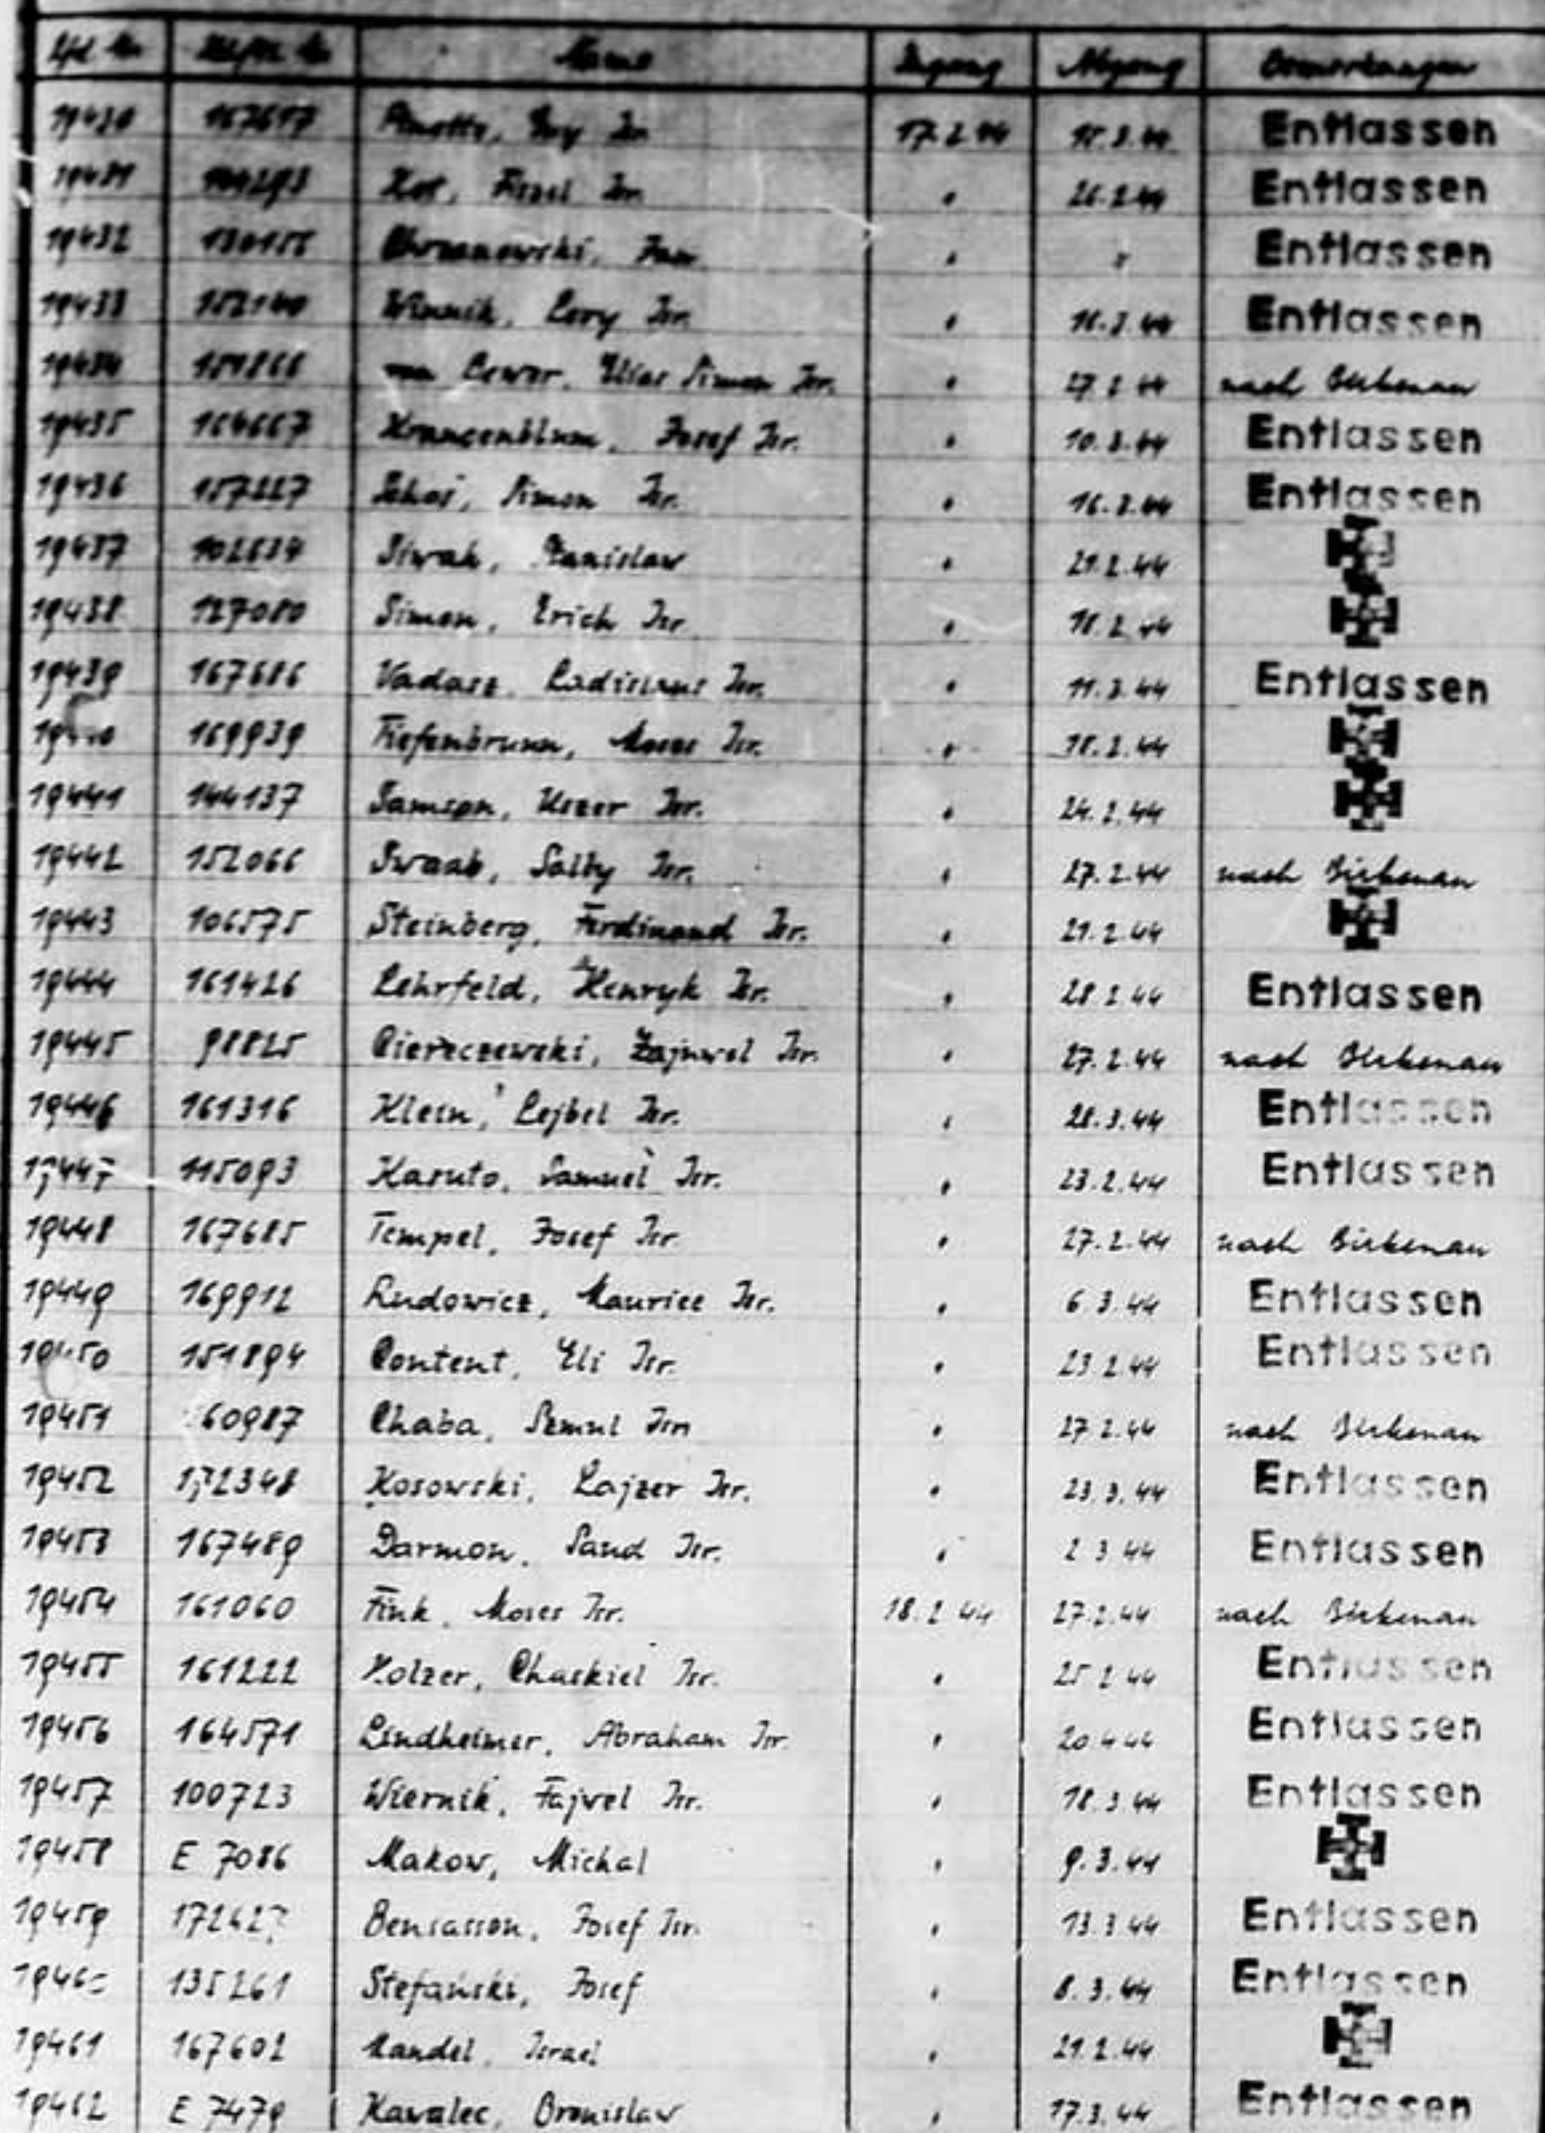 Lfd. Nr. Häftl. Nr. Name Zugang Abgang Bemerkungen
19430 167617 Isr. 17.2.44 Entlassen
19431 Kot, Isr. " 26.2.44 Entlassen
19432 Chrzanowski, Jan " " Entlassen
19433 152140 Winnik, Levy Isr. " Entlassen
19434 151866 Elias Simon Isr. " 27.2.44 nach Birkenau
19435 164667 Krancenblum, Josef Isr. " 10.3.44 Entlassen
19436 157227 Simon Isr. " 16.3.44 Entlassen
19437 102634 Siwak, Stanislaw " 21.2.44
19438 127080 Simon, Erich Isr. " 18.2.44
19439 167686 Vadasz, Ladislaus Isr. " 11.3.44 Entlassen
19440 169939 Tiefenbrunn, Moses Isr. " 18.2.44
19441 144137 Samson, Uszer Isr. " 24.2.44
19442 152066 Swaab, Salby Isr. " 27.2.44 nach Birkenau
19443 106575 Steinberg, Ferdinand Isr. " 21.2.44
19444 161426 Lehrfeld, Henryk Isr. " 28.2.44 Entlassen
19445 98825 Ciereczewski, Zajnwel Isr. " 27.2.44 nach Birkenau
19446 161316 Klein, Lejbel Isr. " 28.3.44 Entlassen
19447 115093 Kasuto, Samuel Isr. " 23.2.44 Entlassen
19448 167685 Tempel, Josef Isr. " 27.2.44 nach Birkenau
19449 169912 Rudowicz, Maurice Isr. " 6.3.44 Entlassen
19450 151894 Content, Eli Isr. " 23.2.44 Entlassen
19451 Chaba, Szmul Isr. " 27.2.44 nach Birkenau
19452 172348 Kosowski, Lajzer Isr. " 23.3.44 Entlassen
19453 167489 Darmon, Isr. " 2.3.44 Entlassen
19454 161060 Fink, Moses Isr. 18.2.44 27.2.44 nach Birkenau
19455 161222 Holzer, Chaskiel Isr. " 25.2.44 Entlassen
19456 164571 Lindheimer, Abraham Isr. " 20.4.44 Entlassen
19457 100723 Wiernik, Fajwel Isr. " 18.3.44 Entlassen
19458 E 7086 Makow, Michal " 9.3.44
19459 Bensasson, Josef Isr. " 13.3.44 Entlassen
19460 135261 Stefanski, Josef " 8.3.44 Entlassen
19461 167602 Mandel, Israel " 21.2.44
19462 E 7479 Kawalec, Bronislaw " 17.3.44 Entlassen